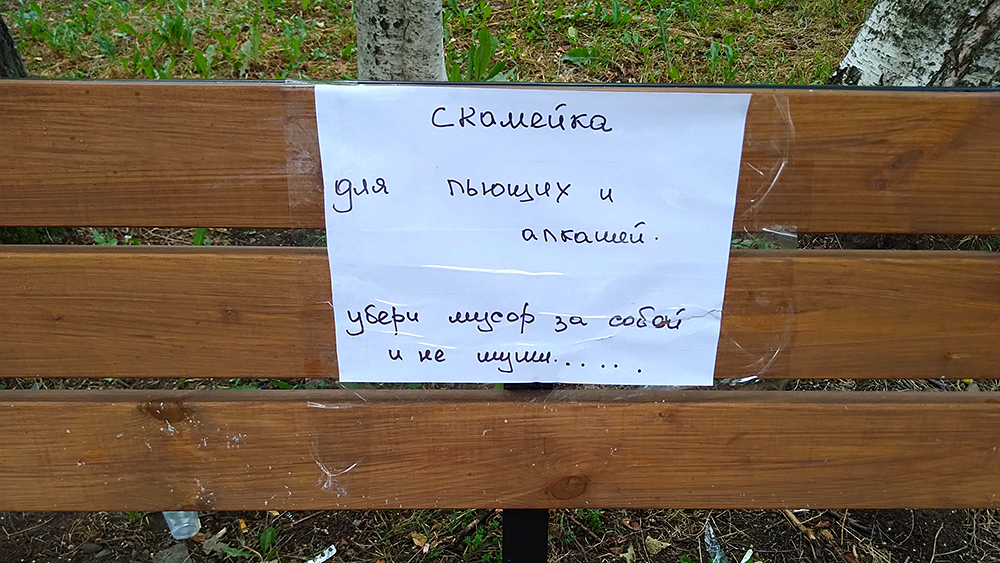 Скамейка
для пьющих и
алкашей.
убери мусор за собой
и не шуми......